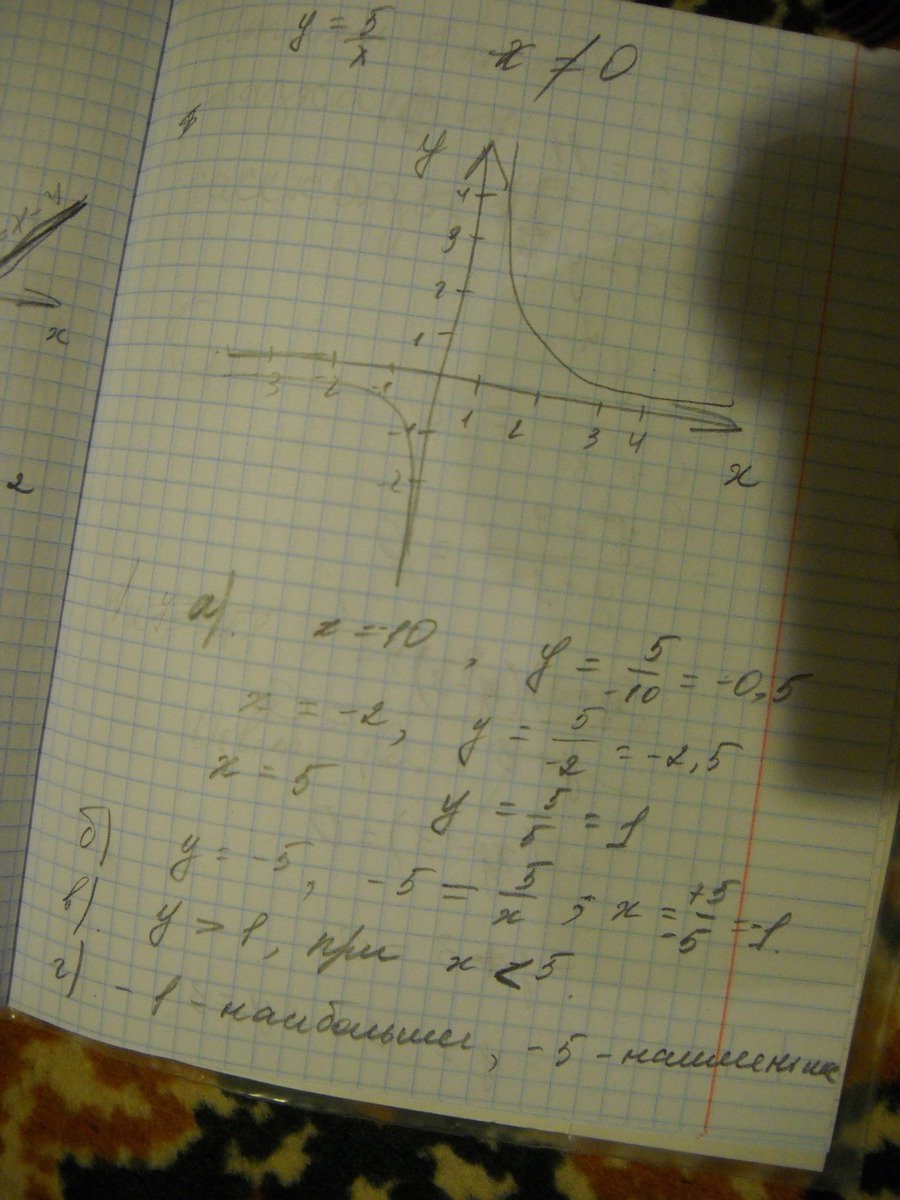 y = 5/x x ≠ 0
y
4
3
2
1
-3 -2 -1
1 2 3 4
-1
x
x
-2
2
а). x = -10, y = 5/-10 = -0,5
x = -2, y = 5/-2 = -2,5
x = 5 y = 5/5 = 1
б) y = -5, -5 = 5/x ; x = +5/-5 = -1.
в). y > 1, при x < 5.
г) -1 - наибольшее, -5 - наименьшее